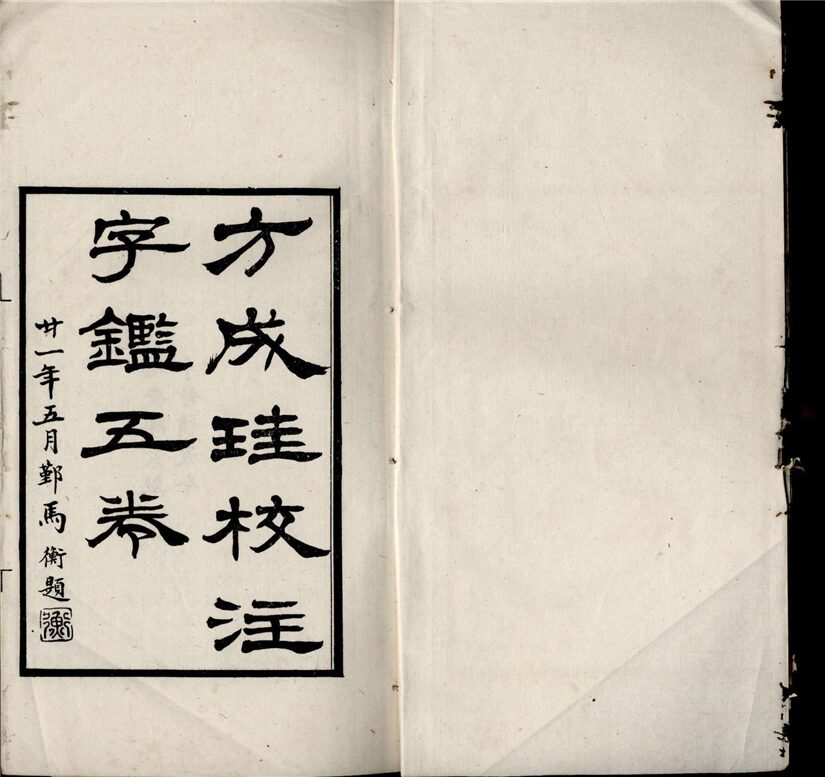 方成珪校注
字鑑五卷
廿一年五月鄞馬衡題
衡